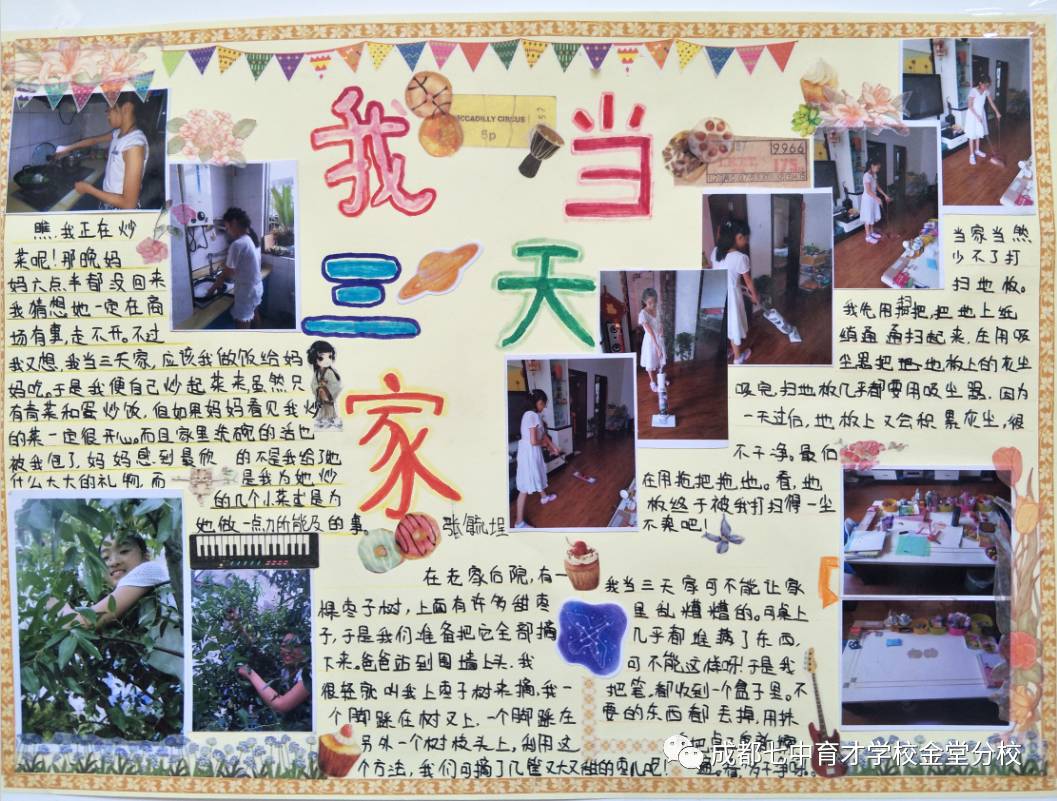 我当
三天
家
PICCADILLY CIRCUS
6p
9966
175
瞧,我正在炒
菜呢!那晚妈
妈六点半都没回来
我猜想她一定在商
场有事,走不开。不过
我又想,我当三天家,应该我做饭给妈
妈吃。于是我便自己炒起菜来,虽然只
有青菜和蛋炒饭,但如果妈妈看见我炒
的菜一定很开心。而且家里洗碗的活也
被我包了,妈妈感到最欣 的不是我给了她
什么大大的礼物,而
是我为她炒
的几个小菜或是为
她做一点力所能及的事。
张毓埕
当家当然
少不了打
扫地板。
我先用扫把,把地上纸
绡通通扫起来,在用吸
尘器把地板上的灰尘
吸完,扫地板几乎都要用吸尘器,因为
一天过后,地板上又会积累灰尘,很
不干净。最后
在用拖把拖地。看,地
板终于被我打扫得一尘
不染吧!
在老家后院,有一
棵枣子树,上面有许多甜枣
子,于是我们准备把它全部摘
下来。爸爸站到围墙上头,我
很轻就叫我上枣子树来摘,我一
个脚踩在树叉上,一个脚踩在
另外一个树枝头上,利用这
个方法,我们可摘了几筐又大又甜的枣儿呢!
我当三天家可不能让家
里乱糟糟的。可桌上
几乎都堆满了东西,
可不能这样呀!于是我
把笔都收到一个盒子里。不
要的东西都丢掉,用抹
成都七中育才学校金堂分校